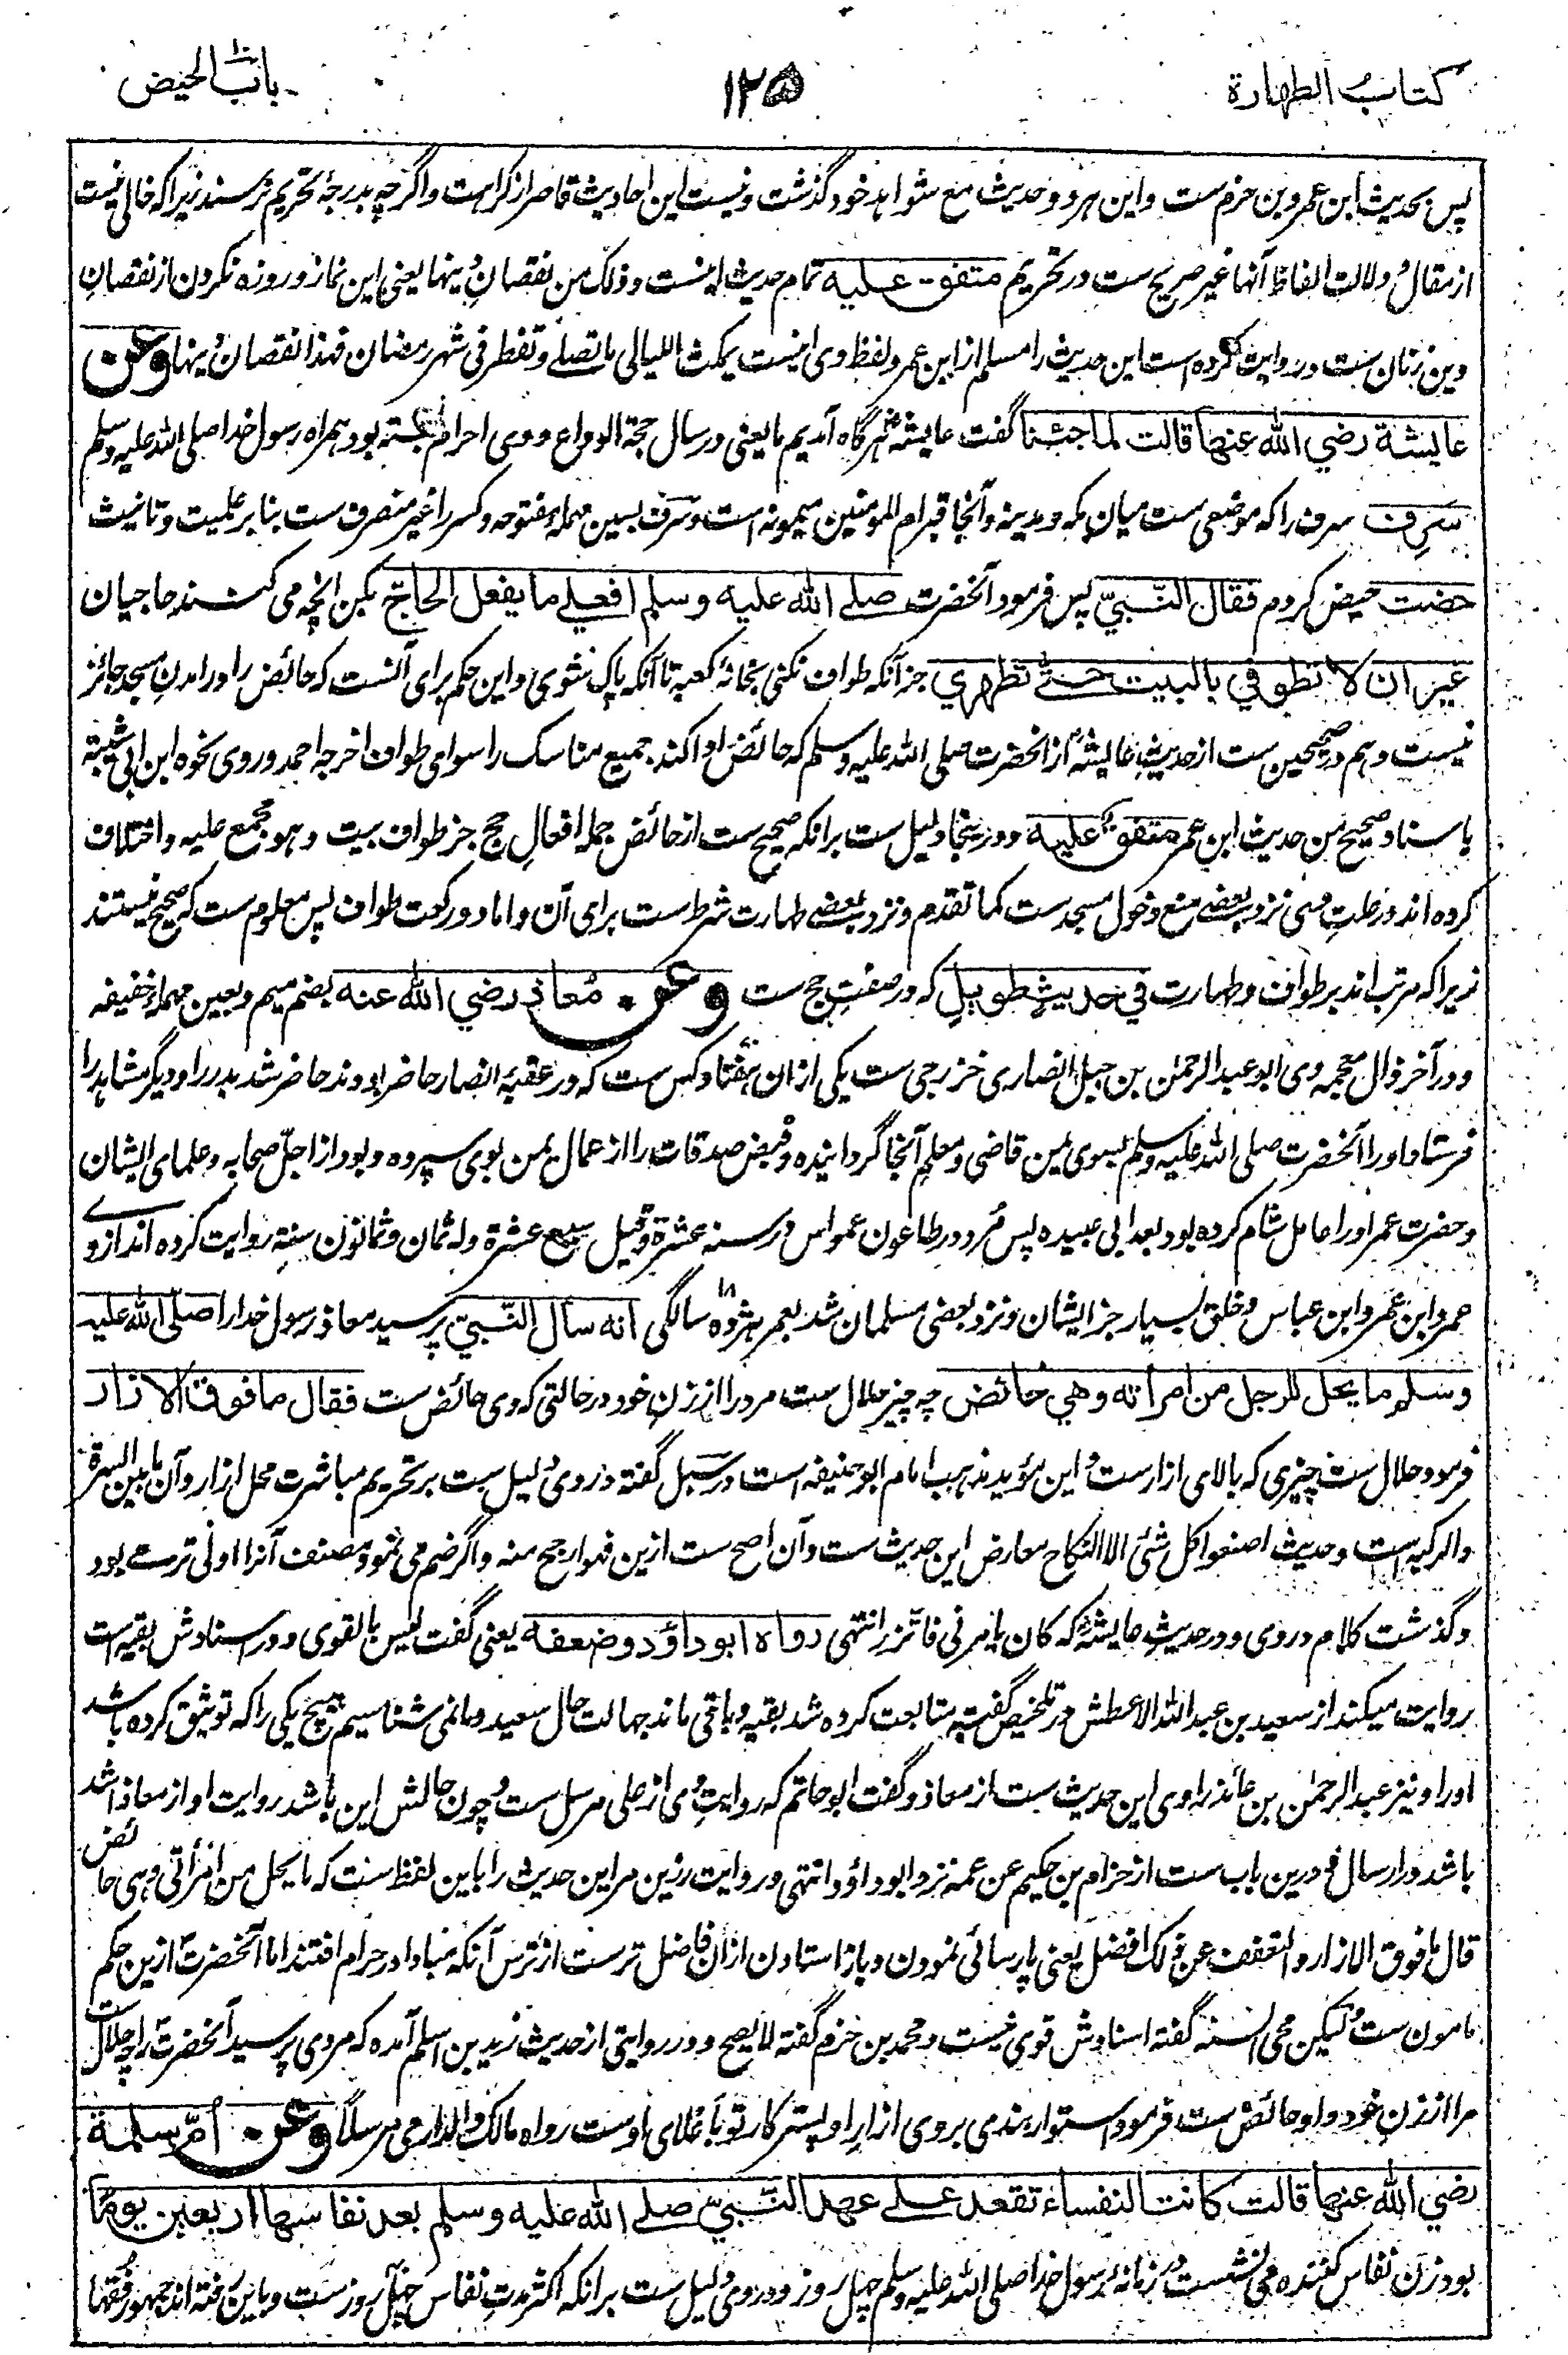 كتاب الطهارة
١٢٥
باب الحيض
پس بحدیث ابن عمرو بن حزم ست و این هر دو حدیث مع شواهد خود گذشت و نیست این احادیث قاصر از کراهت و اگرچه بدرجهٔ تحریم نرسند زیرا که خالی نیست
از مقال و دلالت الفاظ آنها غیر صریح ست در تحریم متفق عليه تمام حدیث اینست و ذلک من نقصان دینها یعنی این نماز و روزه نکردن از نقصان
دین زنان ست و روایت کرده است این حدیث را مسلم از ابن عمر و لفظ وی اینست یمکث اللیالی ما تصلے و تفطر فی شهر رمضان فهذا نقصان دینها وعن
عايشة رضي الله عنها قالت لما جئنا گفت عایشهؓ هرگاه آمدیم ما یعنی در سال حجة الوداع و وی احرام بسته بود همراه رسول خدا صلی الله علیه وسلم
سَرِف سرف را که موضعی ست میان مکه و مدینه و آنجا قبر ام المومنین میمونه است و سرف بسین مهملهٔ مفتوحه و کسر را غیر منصرف ست بنا بر علمیت و تانیث
حضت حیض کردم فقال النّبيّ پس فرمود آنحضرت صلے الله عليه وسلم افعلي ما يفعل الحاجّ بکن آنچه می کنند حاجیان
غير ان لا تطوفي بالبيت حتے تطهري جز آنکه طواف نکنی بخانهٔ کعبه تا آنکه پاک شوی و این حکم برای آنست که حائض را در امدن مسجد جائز
نیست و هم در صحیحین ست از حدیث عایشهؓ از آنحضرت صلی الله علیه وسلم که حائض ادا کند جمیع مناسک را سوای طواف اخرجه احمد و روی نحوه ابن ابی شیبة
باسناد صحیح من حدیث ابن عمر متفق عليه و درینجا دلیل ست برانکه صحیح ست از حائض جمله افعال حج جز طواف بیت و هو مجمع علیه و اختلاف
کرده اند در علت وی نزد بعضے منع دخول مسجد ست کما تقدم و نزد بعضے طهارت شرط ست برای آن و اما دو رکعت طواف پس معلوم ست که صحیح نیستند
زیرا که مرتب اند بر طواف و طهارت في حديث طويل که در صفت حج ست وعن معاذ رضي الله عنه بضم میم و بعین مهملهٔ خفیفه
و در آخر ذال معجمه وی ابو عبد الرحمٰن بن جبل انصاری خزرجی ست یکی ازان هفتاد کس ست که در عقبهٔ انصار حاضر بودند حاضر شد بدر را و دیگر مشاهد را
فرستاد او را آنحضرت صلی الله علیه وسلم بسوی یمن قاضی و معلم آنجا گردانیده و قبض صدقات را از عمال یمن بوی سپرده و بود از اجلّ صحابه و علمای ایشان
و حضرت عمر او را عامل شام کرده بود بعد ابی عبیده پس مُرد در طاعون عمواس در سنه عشرة و قیل سبع عشرة وله ثمان و ثمانون سنةً روایت کرده اند از وے
عمر و ابن عمر و ابن عباس و خلق بسیار جز ایشان و نزد بعضی مسلمان شد بعمر هژده ١٨ سالگی انه سأل النّبيّ پرسید معاذ رسول خدا را صلّى الله عليه
وسلم ما يحل للرجل من امرأته وهي حائض چه چیز حلال ست مرد را از زن خود در حالتی که وی حائض ست فقال ما فوق الازار
فرمود حلال ست چیزی که بالای ازار ست و این مؤید مذهب امام ابو حنیفه است در سبل گفته در وی دلیل ست بر تحریم مباشرت محل ازار و آن ما بین السرة
والرکبة است و حدیث اصنعوا کل شئ الا النکاح معارض این حدیث ست و آن اصح ست ازین فهو ارجح منه و اگر ضم می نمود مصنف آنرا اولی ترے بود
و گذشت کلام در وی و در حدیث عایشهؓ که کان یامرنی فاتزر انتهی رواه ابو داؤد وضعفه یعنی گفت لیس بالقوی و در اسنادش بقیه است
روایت میکند از سعید بن عبد الله الاعطش در تلخیص گفته متابعت کرده شد بقیه و باقی ماند جهالت حال سعید و ما نمی شناسیم هیچ یکی را که توثیق کرده باشد
او را و نیز عبد الرحمٰن بن عائذ راوی این حدیث ست از معاذ و گفت ابو حاتم که روایت وی از علی مرسل ست و چون حالش این باشد روایت او از معاذ اشد
باشد در ارسال و درین باب ست از حزام بن حکیم عن عمه نزد ابو داؤد انتهی و روایت رزین مر این حدیث را باین لفظ ست که ما یحل من امرأتی وهی حائض
قال ما فوق الازار والتعفف عن ذلک افضل یعنی پارسائی نمودن و باز استادن ازان فاضل تر ست از ترس آنکه مبادا در حرام افتند اما آنحضرتؐ ازین حکم
مامون ست و لیکن محی السنه گفته اسنادش قوی نیست و محمد بن حزم گفته لا یصح و در روایتی از حدیث زید بن اسلم آمده که مردی پرسید آنحضرتؐ را چه حلال ست
مرا از زن خود و او حائض ست فرمود استوار بندی بروی ازار او پستر کار تو باعلای اوست رواه مالک والدارمی مرسلاً وعن أمّ سلمة
رضي الله عنها قالت كانت النفساء تقعد علے عهد النّبيّ صلے الله عليه وسلم بعد نفاسها اربعين يومًا
بود زن نفاس کننده می نشست در زمانهٔ رسول خدا صلی الله علیه وسلم چهل روز و در وی دلیل ست برانکه اکثر مدت نفاس چهل روز ست و باین رفته اند جمهور فقها